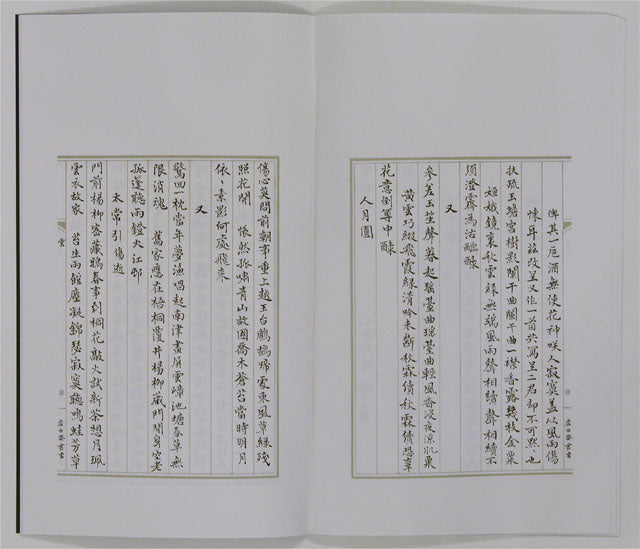 俾其一卮酒無使花神咲人寂寞盖以風雨傷
懐耳茲改呈又作一首共寫呈二君却不可 也
扶疏玉蟾宮樹影闌干曲闌干曲一襟香露幾枝金粟
姮娥鏡裏秋雲綠無端風雨聲相續聲相續不
須澄霽為治醽醁
又
參差玉笙聲 起瑤臺曲瑤臺曲輕風香浸夜涼肌粟
黃雲巧綴飛霞綠清吟未斷秋霖續秋霖續恐辜
花意倒尊中醁
人月圓
傷心莫問前朝事重上越王台鷓鴣啼處東風草緑殘
照花開 悵然孤嘯青山故國喬木蒼苔當時明月
依〻素影何處飛来
又
驚回一枕當年夢漁唱起南津畫屏雲嶂池塘春草無
限消魂 舊家應在梧桐覆井楊柳藏門閑身空老
孤蓬聽雨燈火江邨
太常引 傷逝
門前楊柳密藏鴉春事到桐花敲火試新茶想月珮
雲衣故家 苔生雨館塵凝錦瑟寂寞聽鳴蛙芳草